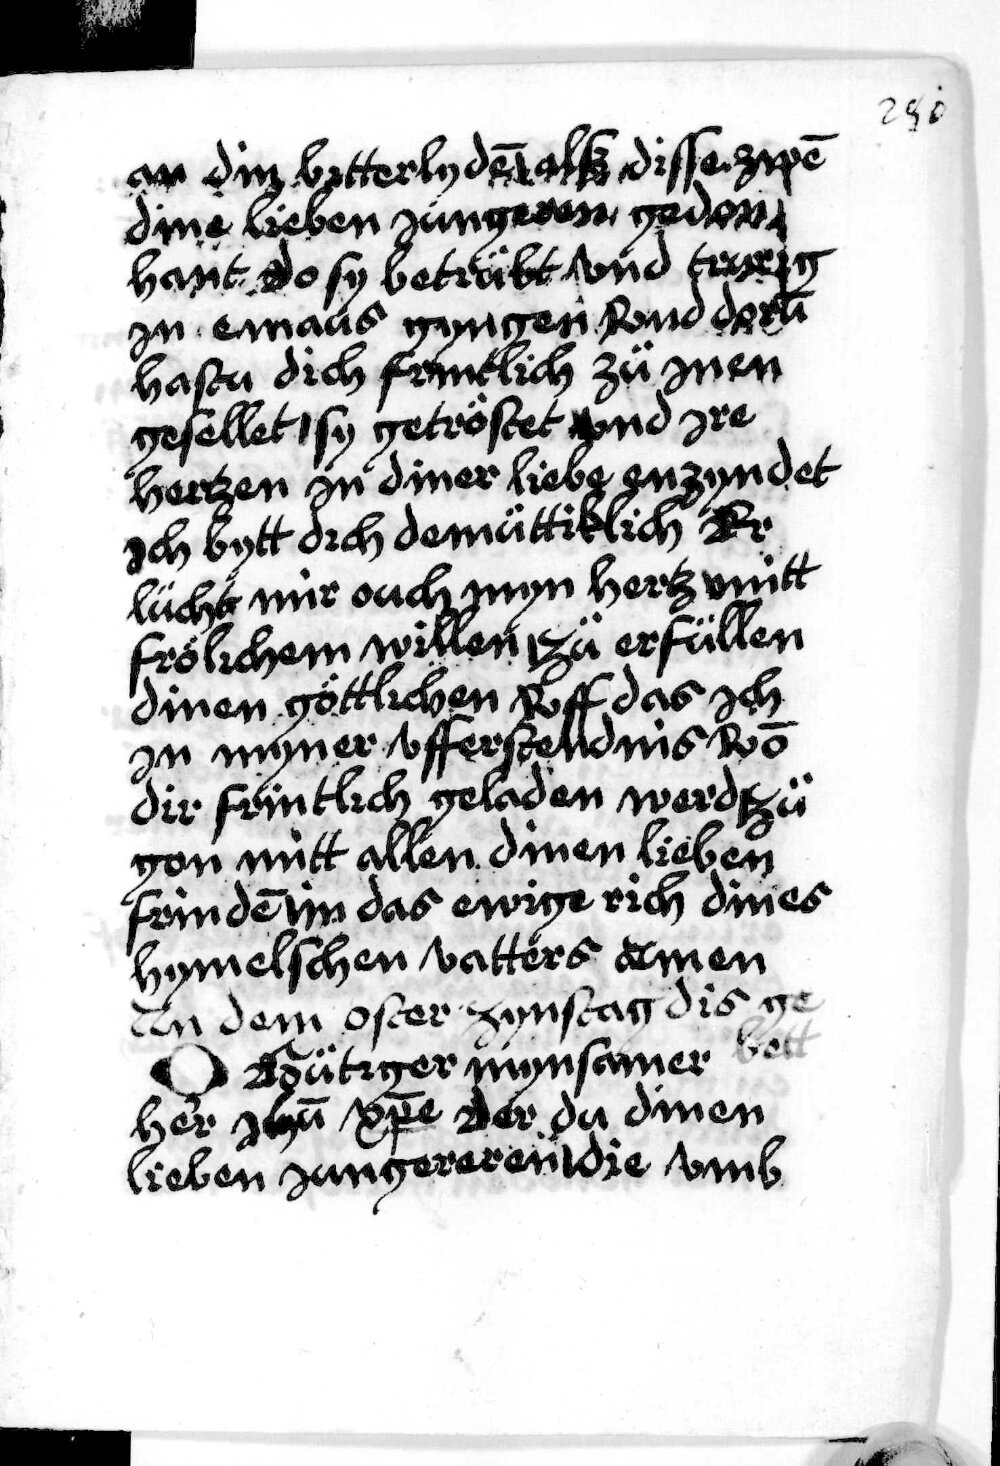 an din bitter lydē als disse zwē
dine lieben jungeren gedon
hant do sy betrübt vnd trurig
in emaus gyngen vnd dorū
hastu dich frintlich zü inen
gesellet / sy getröstet vnd ire
hertzen in diner liebe enzyndet
ich bytt dich demüttiklich Er
lücht mir ouch myn hertz mitt
frölichem willen zü erfüllen
dinen göttlichen Rüff das ich
in myner vfferstendnis vō
dir frintlich geladen werd zü
gon mitt allen dinen lieben
frindē in das ewige rich dines
hymelschen vatters amen
An dem oster zynstag dis ge
bett
O Gütiger mynsamer
her ihū xp̄e der du dinen
lieben jungereren die vmb